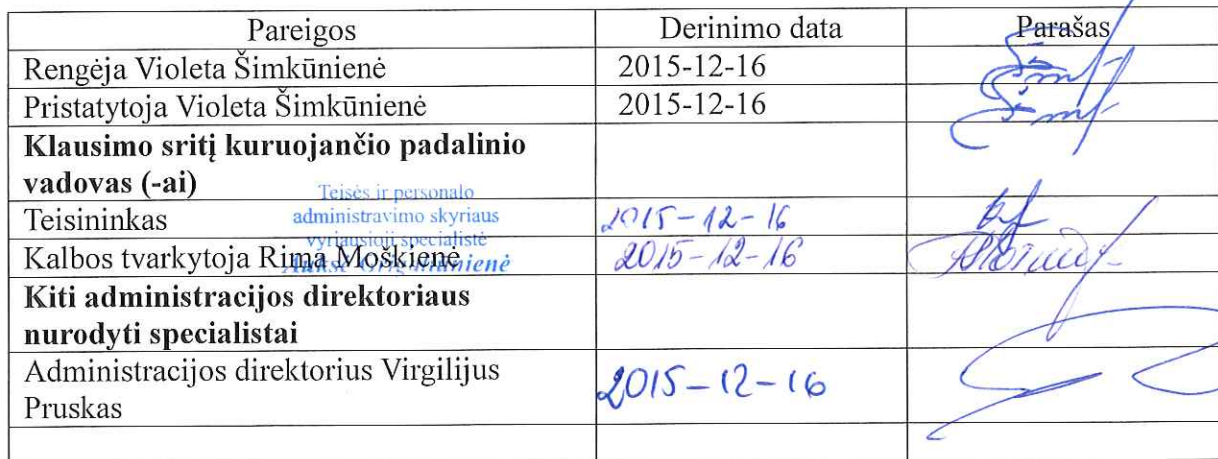 Pareigos Derinimo data Parašas
Rengėja Violeta Šimkūnienė 2015-12-16
Pristatytoja Violeta Šimkūnienė 2015-12-16
Klausimo sritį kuruojančio padalinio
vadovas (-ai)
Teisės ir personalo
Teisininkas administravimo skyriaus 2015-12-16
vyriausioji specialistė
Kalbos tvarkytoja Rima Moškienė 2015-12-16
Kiti administracijos direktoriaus
nurodyti specialistai
Administracijos direktorius Virgilijus
Pruskas 2015-12-16